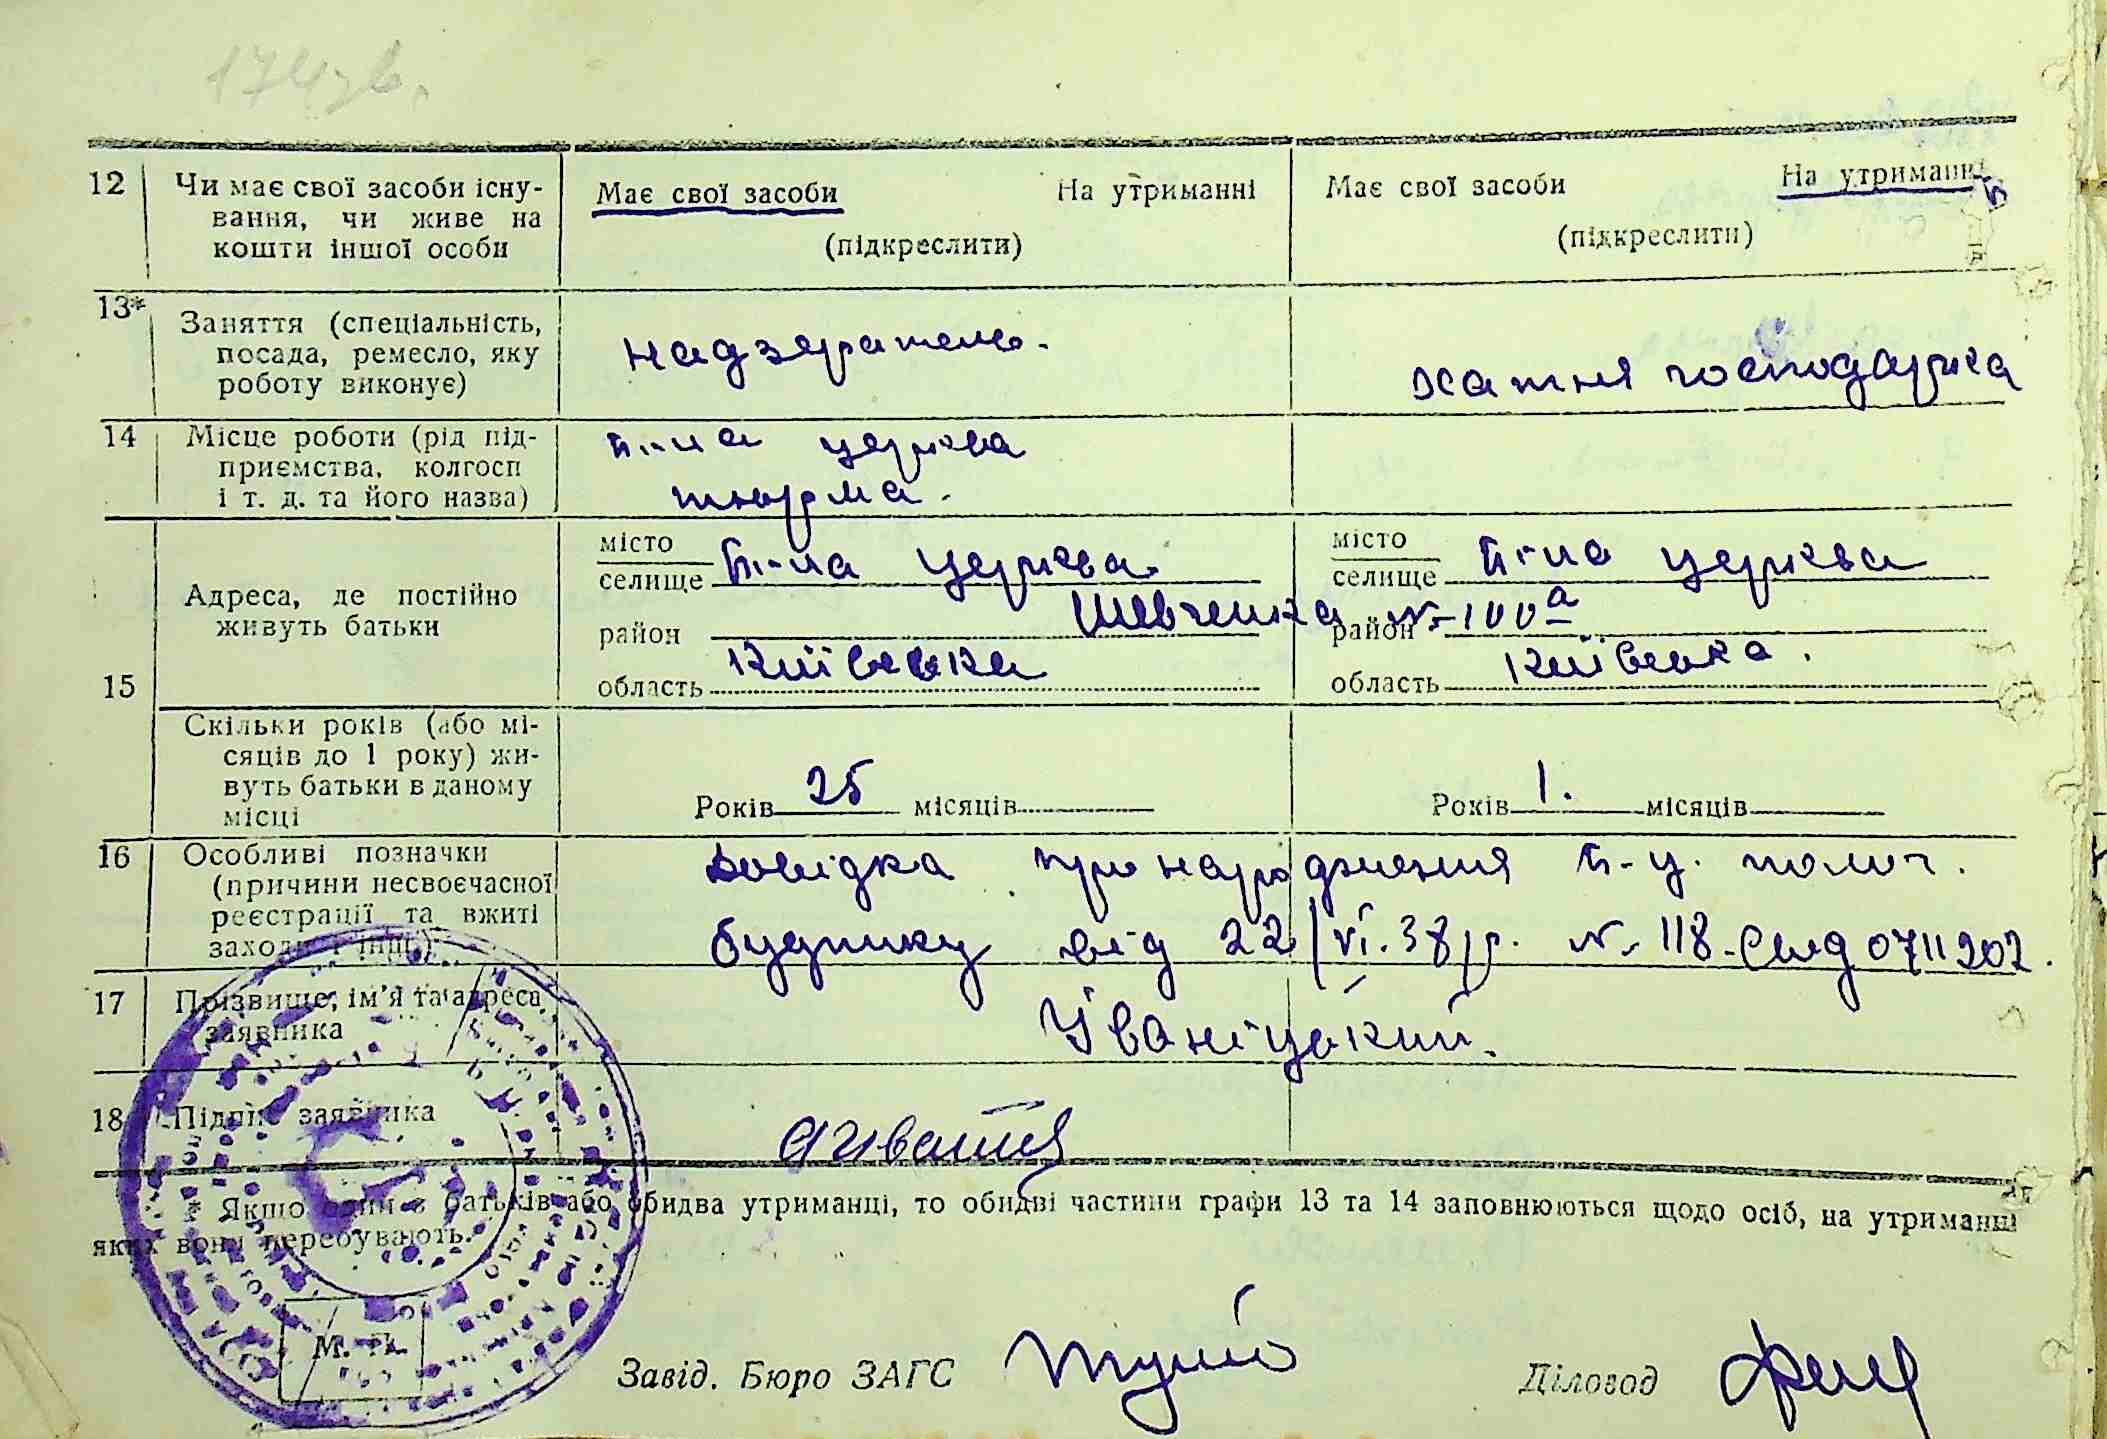 174зв.
12 Чи має свої засоби існу-
вання, чи живе на
кошти іншої особи
Має свої засоби На утриманні
(підкреслити)
Має свої засоби На утриманні
(підкреслити)
13* Заняття (спеціальність,
посада, ремесло, яку
роботу виконує)
надзератель.
хатня господарка
14 Місце роботи (рід під-
приємства, колгосп
і т. д. та його назва)
Біла церква
тюрма.
15 Адреса, де постійно
живуть батьки
місто
селище Біла церква
район Шевченка
область Київська
місто
селище Біла церква
район № 100а
область Київська.
Скільки років (або мі-
сяців до 1 року) жи-
вуть батьки в даному
місці
Років 25 місяців
Років 1. місяців
16 Особливі позначки
(причини несвоєчасної
реєстрації та вжиті
заходи і інш.)
Довідка про народження Б-Ц. полог.
будинку від 22/VI.38 р. № 118. Свід 0711202.
17 Прізвище, ім'я та адреса
заявника
Іваніцький.
18 Підпис заявника
* Якщо один з батьків або обидва утриманці, то обидві частини графи 13 та 14 заповнюються щодо осіб, на утриманні
яких вони перебувають.
М. П.
Завід. Бюро ЗАГС
Діловод